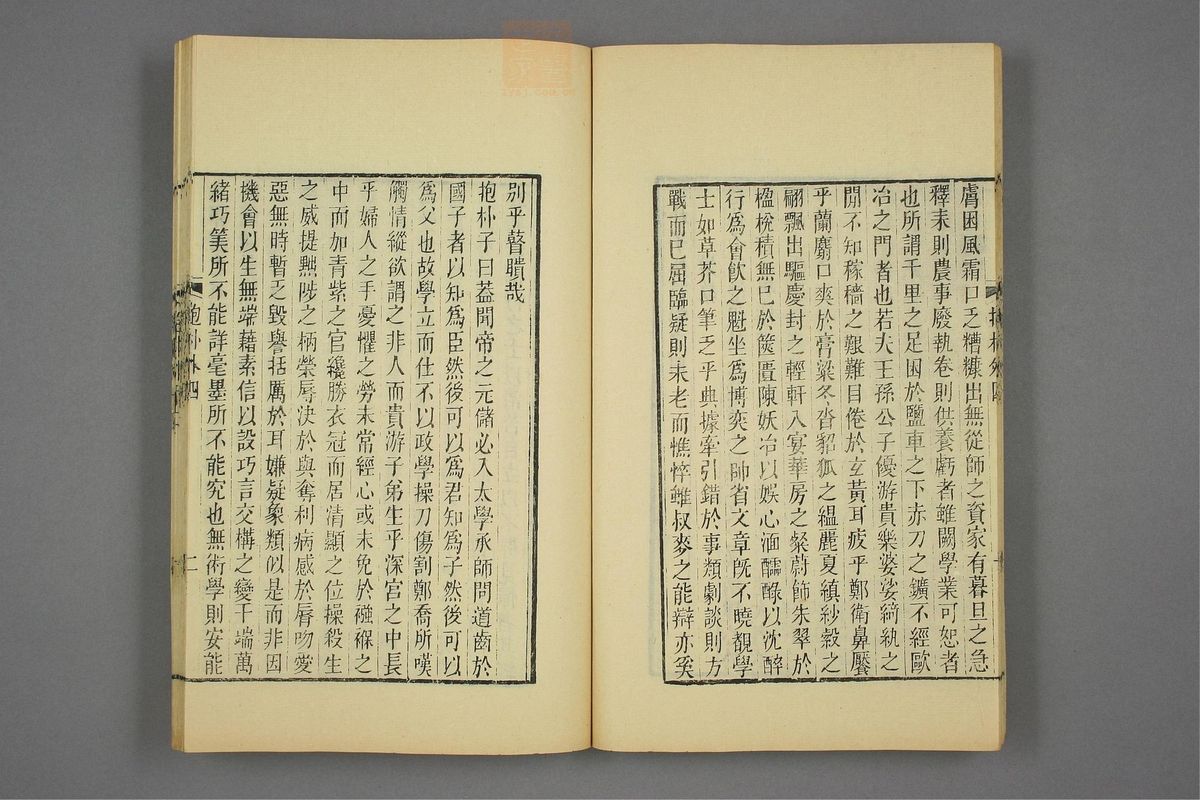 膚困風霜口乏糟糠出無從師之資家有暮旦之急
釋耒則農事廢執卷則供養虧者雖闕學業可恕者
也所謂千里之足困於鹽車之下赤刀之鑛不經歐
冶之門者也若夫王孫公子優游貴樂婆娑綺紈之
閒不知稼穡之艱難目倦於玄黃耳疲乎鄭衛鼻饜
乎蘭麝口爽於膏粱冬沓貂狐之縕麗夏縝紗縠之
翩飄出驅慶封之輕軒入宴華房之粲蔚飾朱翠於
楹梲積無已於篋匱陳妖冶以娛心湎醹醁以沈醉
行爲會飮之魁坐爲博奕之帥省文章旣不曉覩學
士如草芥口筆乏乎典據牽引錯於事類劇談則方
戰而已屈臨疑則未老而憔悴雖叔麥之能辯亦奚
別乎瞽聵哉
抱朴子曰葢聞帝之元儲必入太學承師問道齒於
國子者以知爲臣然後可以爲君知爲子然後可以
爲父也故學立而仕不以政學操刀傷割鄭喬所嘆
觸情縱欲謂之非人而貴游子弟生乎深宮之中長
乎婦人之手憂懼之勞未常經心或未免於襁褓之
中而加青紫之官纔勝衣冠而居清顯之位操殺生
之威提黜陟之柄榮辱決於與奪利病感於脣吻愛
惡無時暫乏毀譽括厲於耳嫌疑象類似是而非因
機會以生無端藉素信以設巧言交構之變千端萬
緒巧筭所不能詳毫墨所不能究也無術學則安能
抱朴外四
二